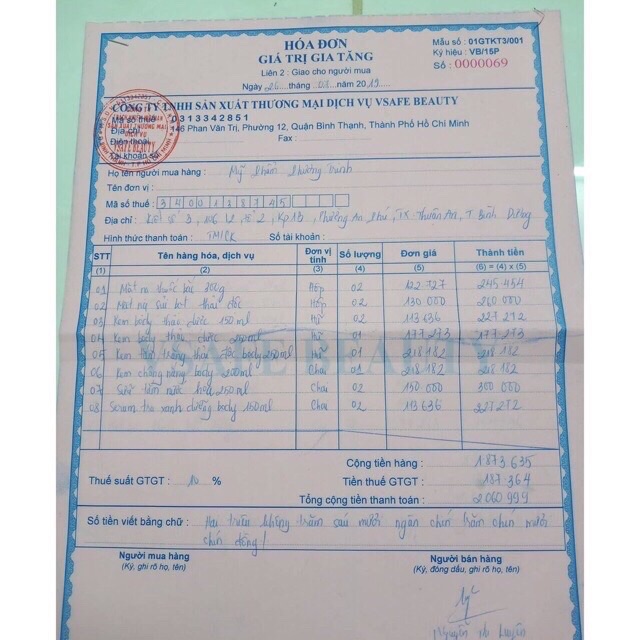 HÓA ĐƠN
GIÁ TRỊ GIA TĂNG
Liên 2 : Giao cho người mua
Mẫu số : 01GTKT3/001
Ký hiệu : VB/15P
Số : 0000069
Ngày 26 tháng 03 năm 2019
CÔNG TY TNHH SẢN XUẤT THƯƠNG MẠI DỊCH VỤ VSAFE BEAUTY
Mã số thuế 0313342851
Địa chỉ 146 Phan Văn Trị, Phường 12, Quận Bình Thạnh, Thành Phố Hồ Chí Minh
Điện thoại Fax :
Tài khoản số
Họ tên người mua hàng : Mỹ Phẩm
Tên đơn vị :
Mã số thuế : 3400128745
Địa chỉ : 3, 2, Kp 1B, Phường An Phú, TX Thuận An, T Bình Dương
Hình thức thanh toán : TM/CK Số tài khoản :
STT Tên hàng hóa, dịch vụ Đơn vị tính Số lượng Đơn giá Thành tiền
(1) (2) (3) (4) (5) (6) = (4) x (5)
01 Hộp 02 122 727 245 454
02 Hộp 02 130 000 260 000
03 Kem body thảo dược 150ml Hũ 02 113 636 227 272
04 Kem body thảo dược 250ml Hũ 01 177 273 177 273
05 Kem trắng body 250ml Hũ 01 218 182 218 182
06 Kem chống nắng body 200ml Chai 01 218 182 218 182
07 Sữ tắm nước 250ml Chai 02 150 000 300 000
08 Serum trà xanh dưỡng body 150ml Chai 02 113 636 227 272
VSAFE BEAUTY
Cộng tiền hàng : 1 873 635
Thuế suất GTGT : 10 % Tiền thuế GTGT : 187 364
Tổng cộng tiền thanh toán : 2 060 999
Số tiền viết bằng chữ : Hai triệu không trăm sáu mươi ngàn chín trăm chín mươi
chín đồng
Người mua hàng
(Ký, ghi rõ họ, tên)
Người bán hàng
(Ký, đóng dấu, ghi rõ họ, tên)
Nguyễn